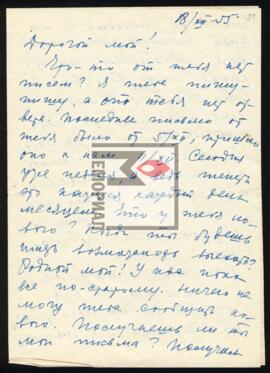 18/XII 55
Дорогой мой!
Что-то от тебя нет
писем? Я тебе пишу-
пишу, а от тебя нет от-
вета. Последнее письмо от
тебя было от 5/XII, пришло
оно к нам 11/XII. Сегодня
уже неделя, а
кажется каждый день
месяцем. Что у тебя но-
вого? Когда ты будешь
иметь возможность выехать?
Родной мой! У нас пока
все по-старому. Ничего не
могу тебе сообщить но-
вого. Получаешь ли ты
мои письма? Получил
МЕМОРИАЛ